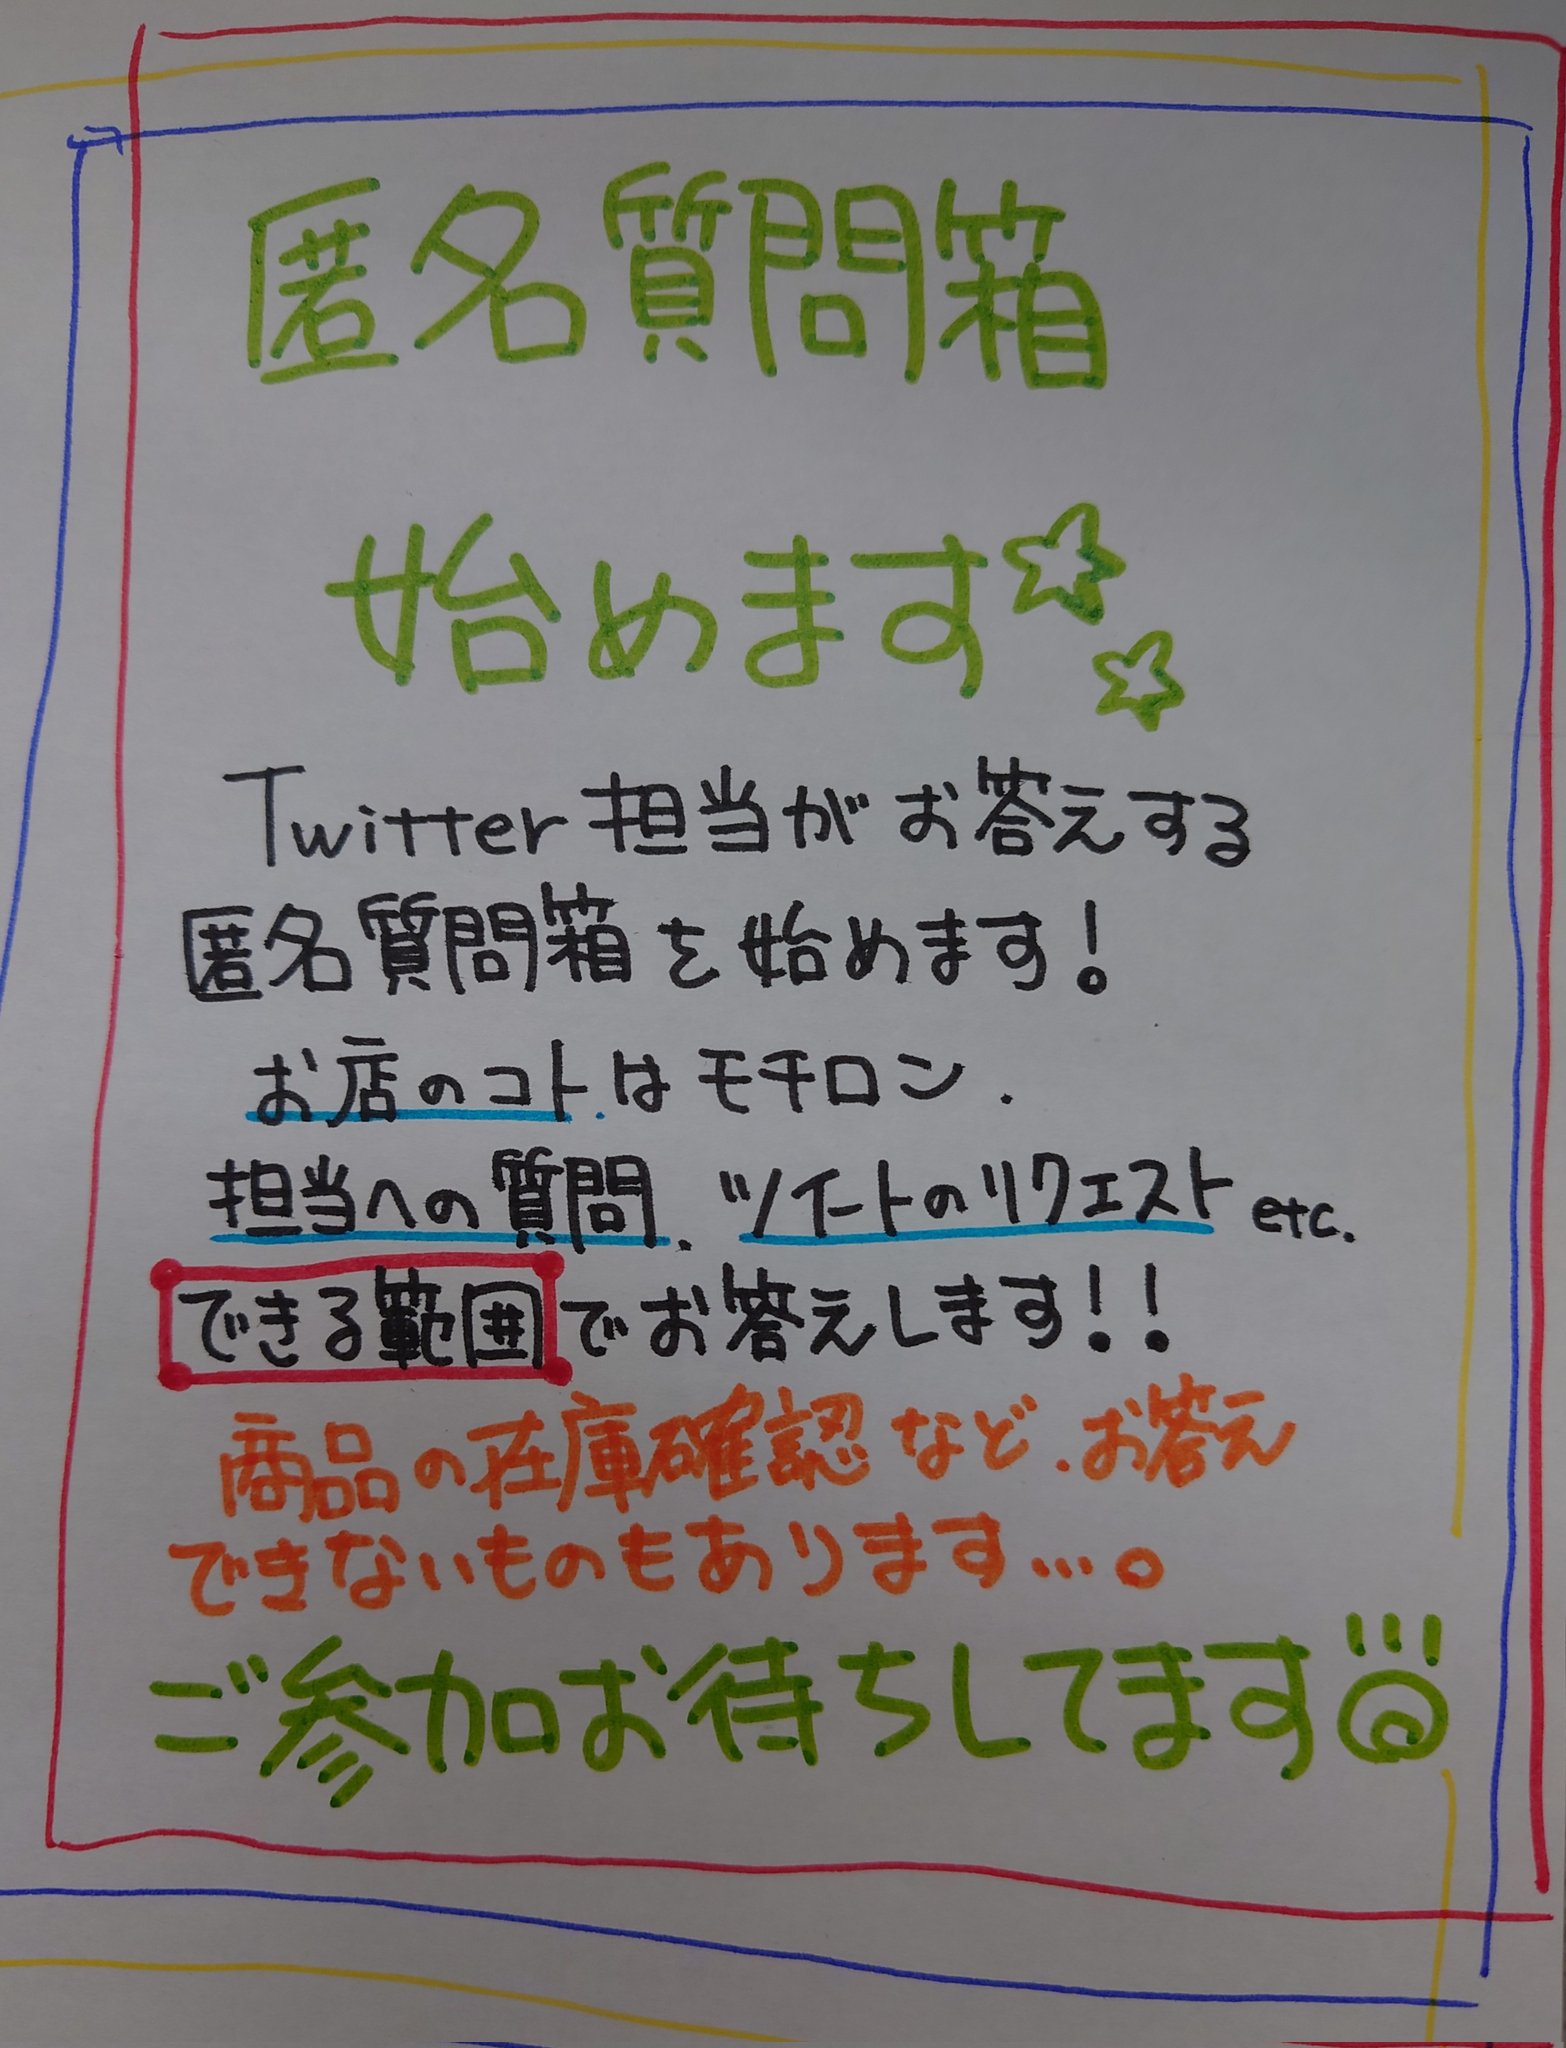 匿名質問箱
始めます☆☆
Twitter担当がお答えする
匿名質問箱を始めます!
お店のコトはモチロン.
担当への質問.ツイートのリクエスト etc.
できる範囲でお答えします!!
商品の在庫確認など.お答え
できないものもあります…。
ご参加お待ちしてます